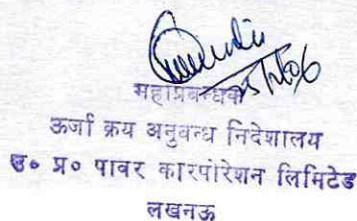 महाप्रबन्धक
ऊर्जा क्रय अनुबन्ध निदेशालय
उ० प्र० पावर कारपोरेशन लिमिटेड
लखनऊ